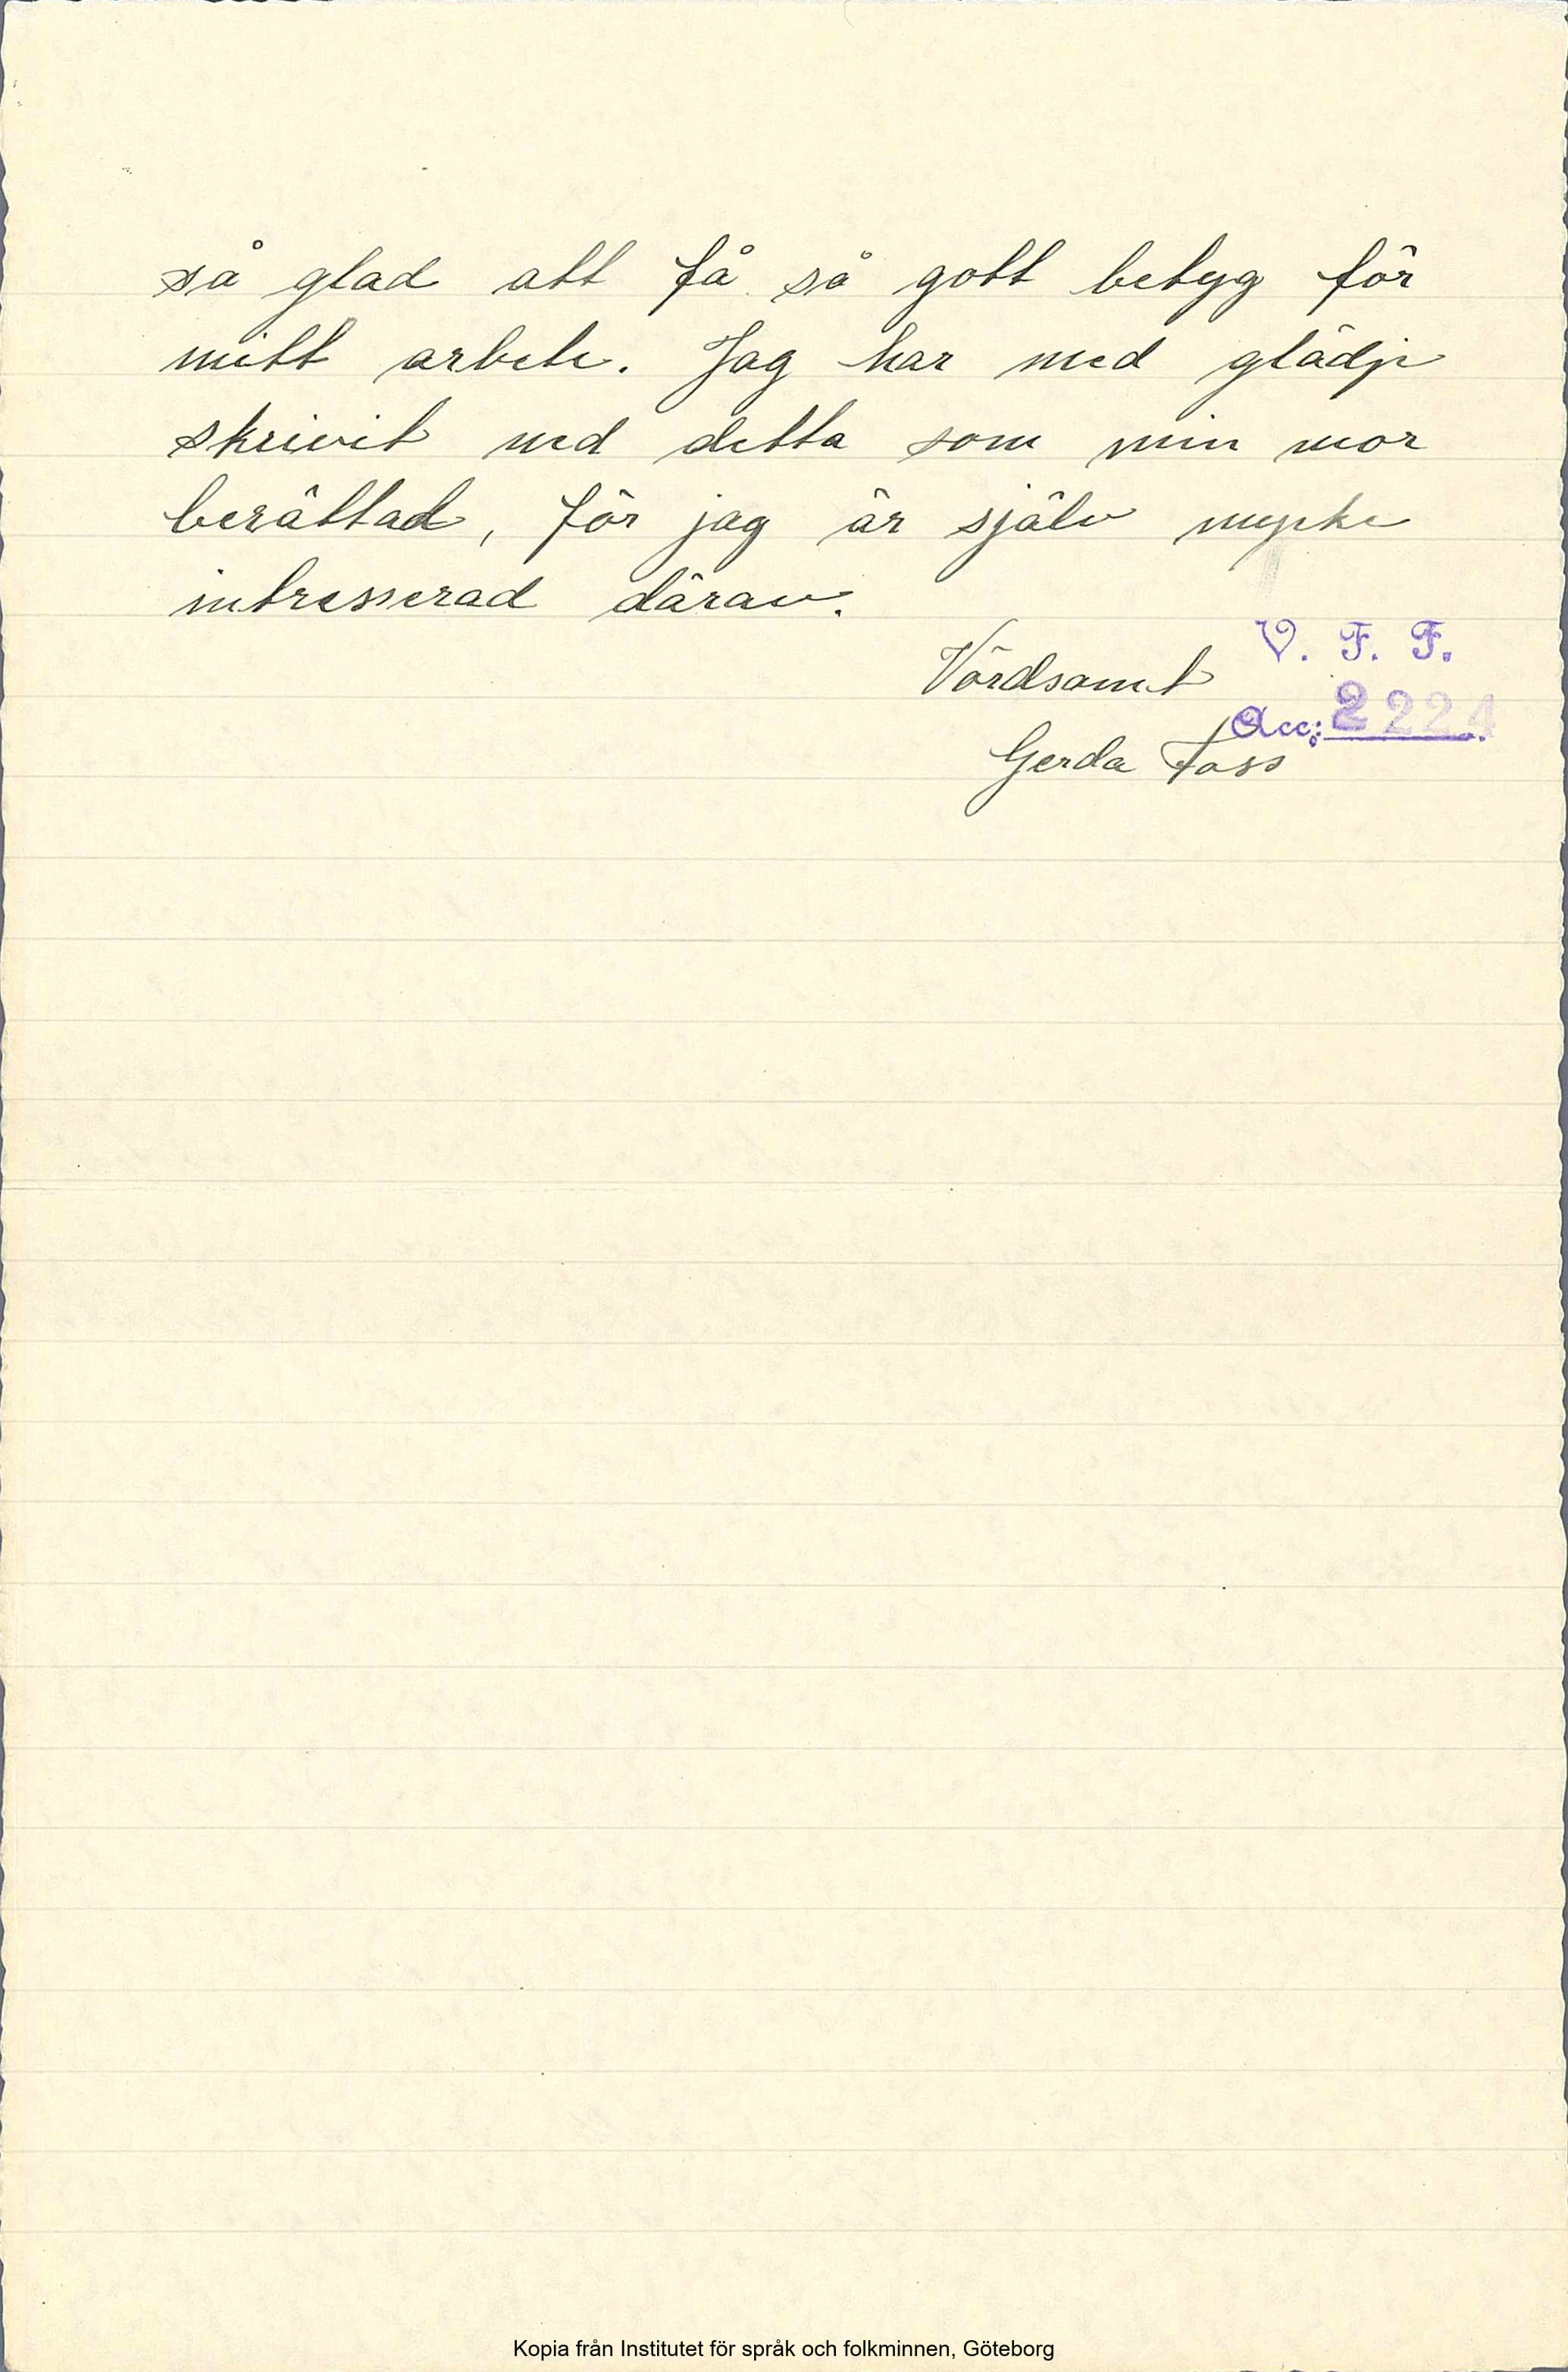 så glad att få så gott betyg för
mitt arbete. Jag har med glädje
skrivit ned detta som min mor
berättad, för jag är själv mycke
intresserad därav.
Vördsamt
V. F. F.
Acc: 2224
Gerda Foss
Kopia från Institutet för språk och folkminnen, Göteborg